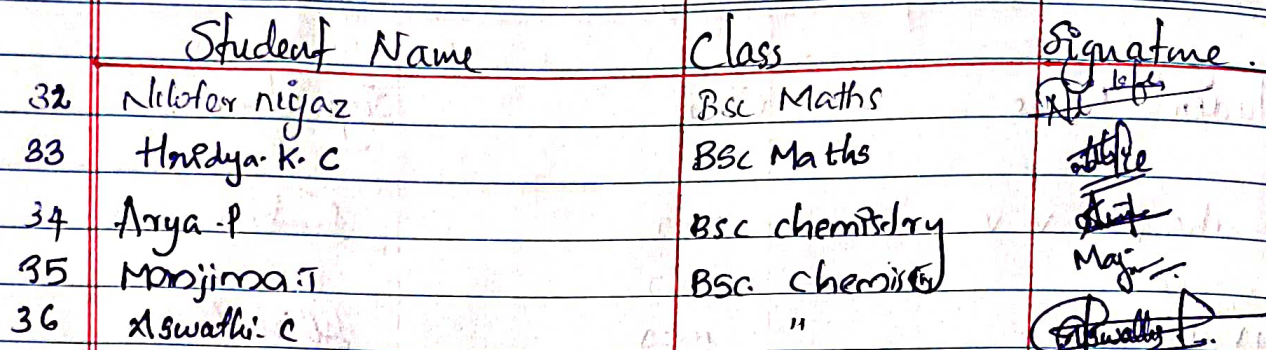 Student Name Class Signature.
32 Nilofer nigaz Bsc Maths
33 Hridya. K. C BSc Maths
34 Arya .P BSC chemistry
35 Manjima.T BSC. chemistry
36 Aswathi. C "